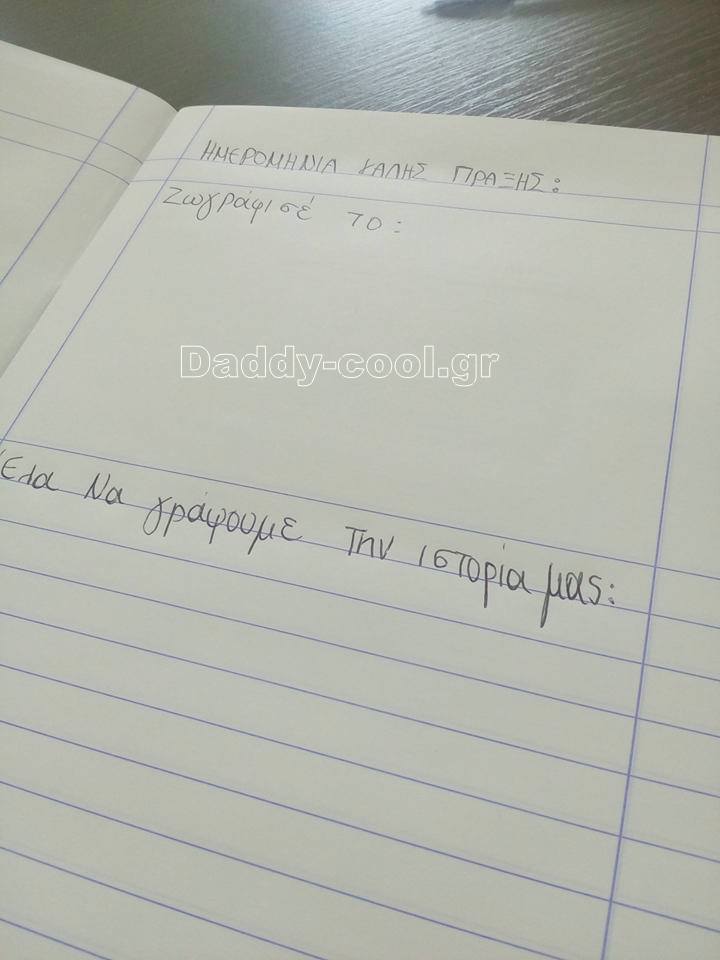 ΗΜΕΡΟΜΗΝΙΑ ΚΑΛΗΣ ΠΡΑΞΗΣ:
Ζωγράφισέ το:
Daddy-cool.gr
Έλα Να γράψουμε Την ιστορία μας: